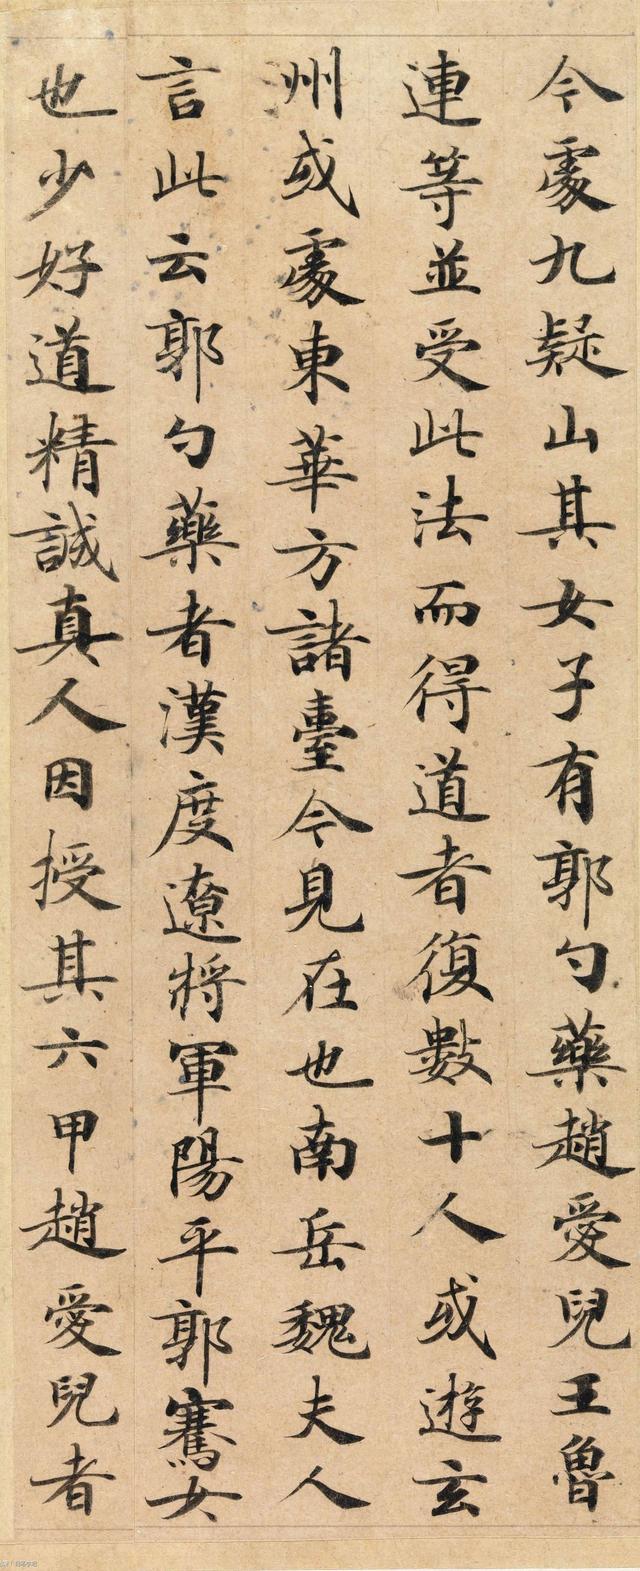 今處九疑山其女子有郭勺藥趙愛兒王魯
連等並受此法而得道者復數十人或遊玄
州或處東華方諸臺今見在也南岳魏夫人
言此云郭勺藥者漢度遼將軍陽平郭騫女
也少好道精誠真人因授其六甲趙愛兒者